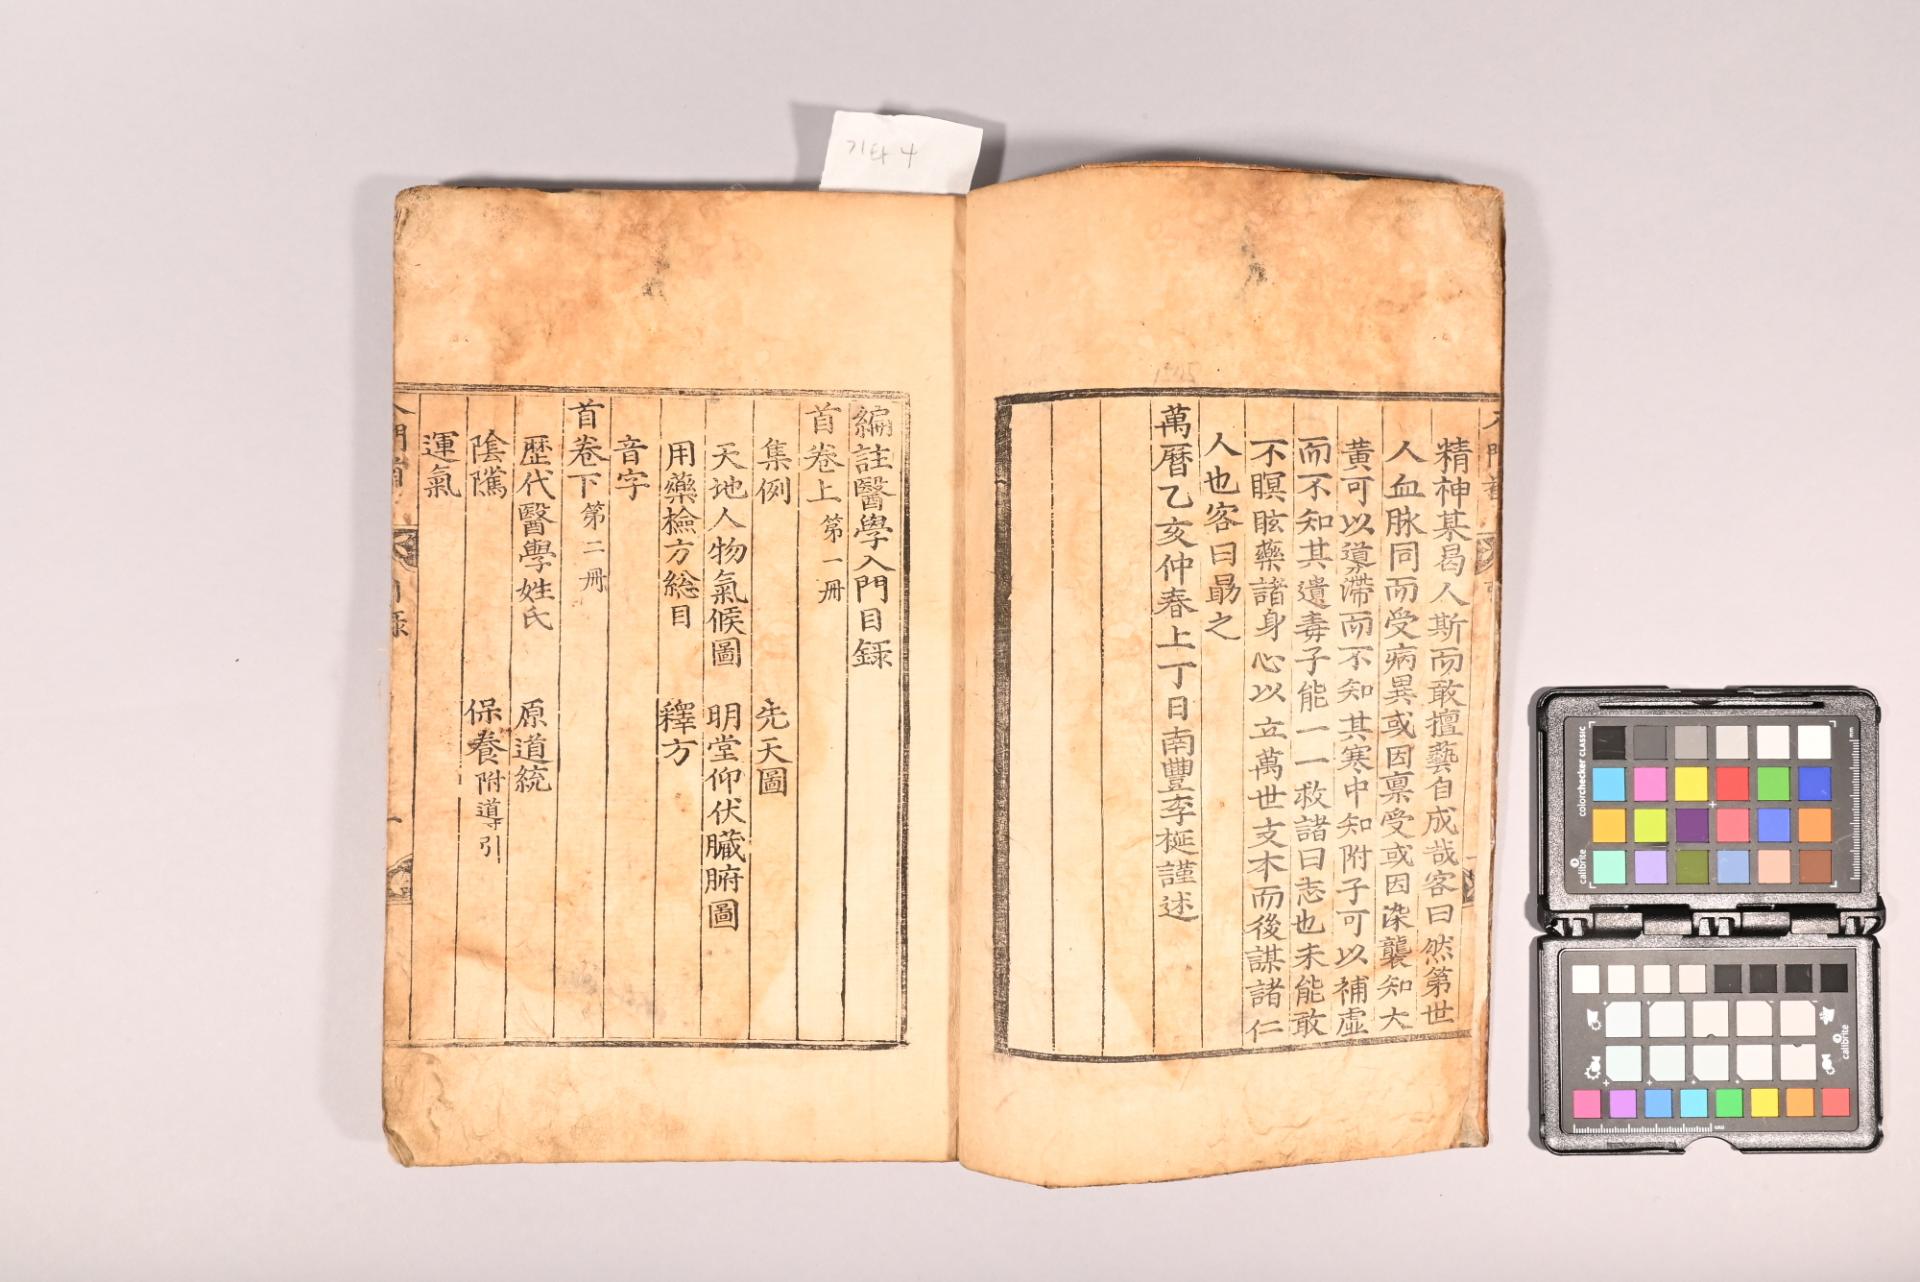 기타 4
精神某曷人斯而敢擅藝自成哉客曰然第世
人血脉同而受病異或因稟受或因染襲知大
黃可以導滯而不知其寒中知附子可以補虛
而不知其遺毒子能一一救諸曰志也未能敢
不瞑眩藥諸身心以立萬世支木而後謀諸仁
人也客曰勗之
萬曆乙亥仲春上丁日南豐李梴謹述
編註醫學入門目錄
首卷上 第一冊
集例 先天圖
天地人物氣候圖 明堂仰伏臟腑圖
用藥檢方総目 釋方
音字
首卷下 第二冊
歷代醫學姓氏 原道統
陰隲 保養 附導引
運氣
colorchecker CLASSIC
calibrite
calibrite